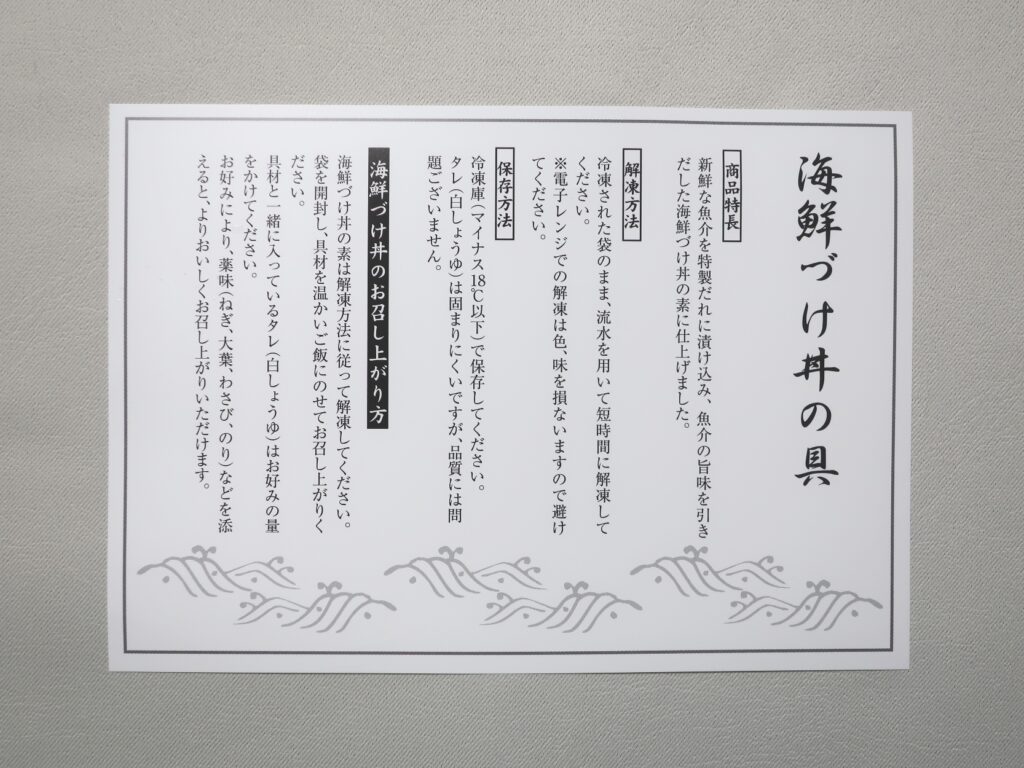 海鮮づけ丼の具
商品特長
新鮮な魚介を特製だれに漬け込み、魚介の旨味を引き
だした海鮮づけ丼の素に仕上げました。
解凍方法
冷凍された袋のまま、流水を用いて短時間に解凍して
ください。
※電子レンジでの解凍は色、味を損ないますので避け
てください。
保存方法
冷凍庫（マイナス18℃以下）で保存してください。
タレ（白しょうゆ）は固まりにくいですが、品質には問
題ございません。
海鮮づけ丼のお召し上がり方
海鮮づけ丼の素は解凍方法に従って解凍してください。
袋を開封し、具材を温かいご飯にのせてお召し上がりく
ださい。
具材と一緒に入っているタレ（白しょうゆ）はお好みの量
をかけてください。
お好みにより、薬味（ねぎ、大葉、わさび、のり）などを添
えると、よりおいしくお召し上がりいただけます。